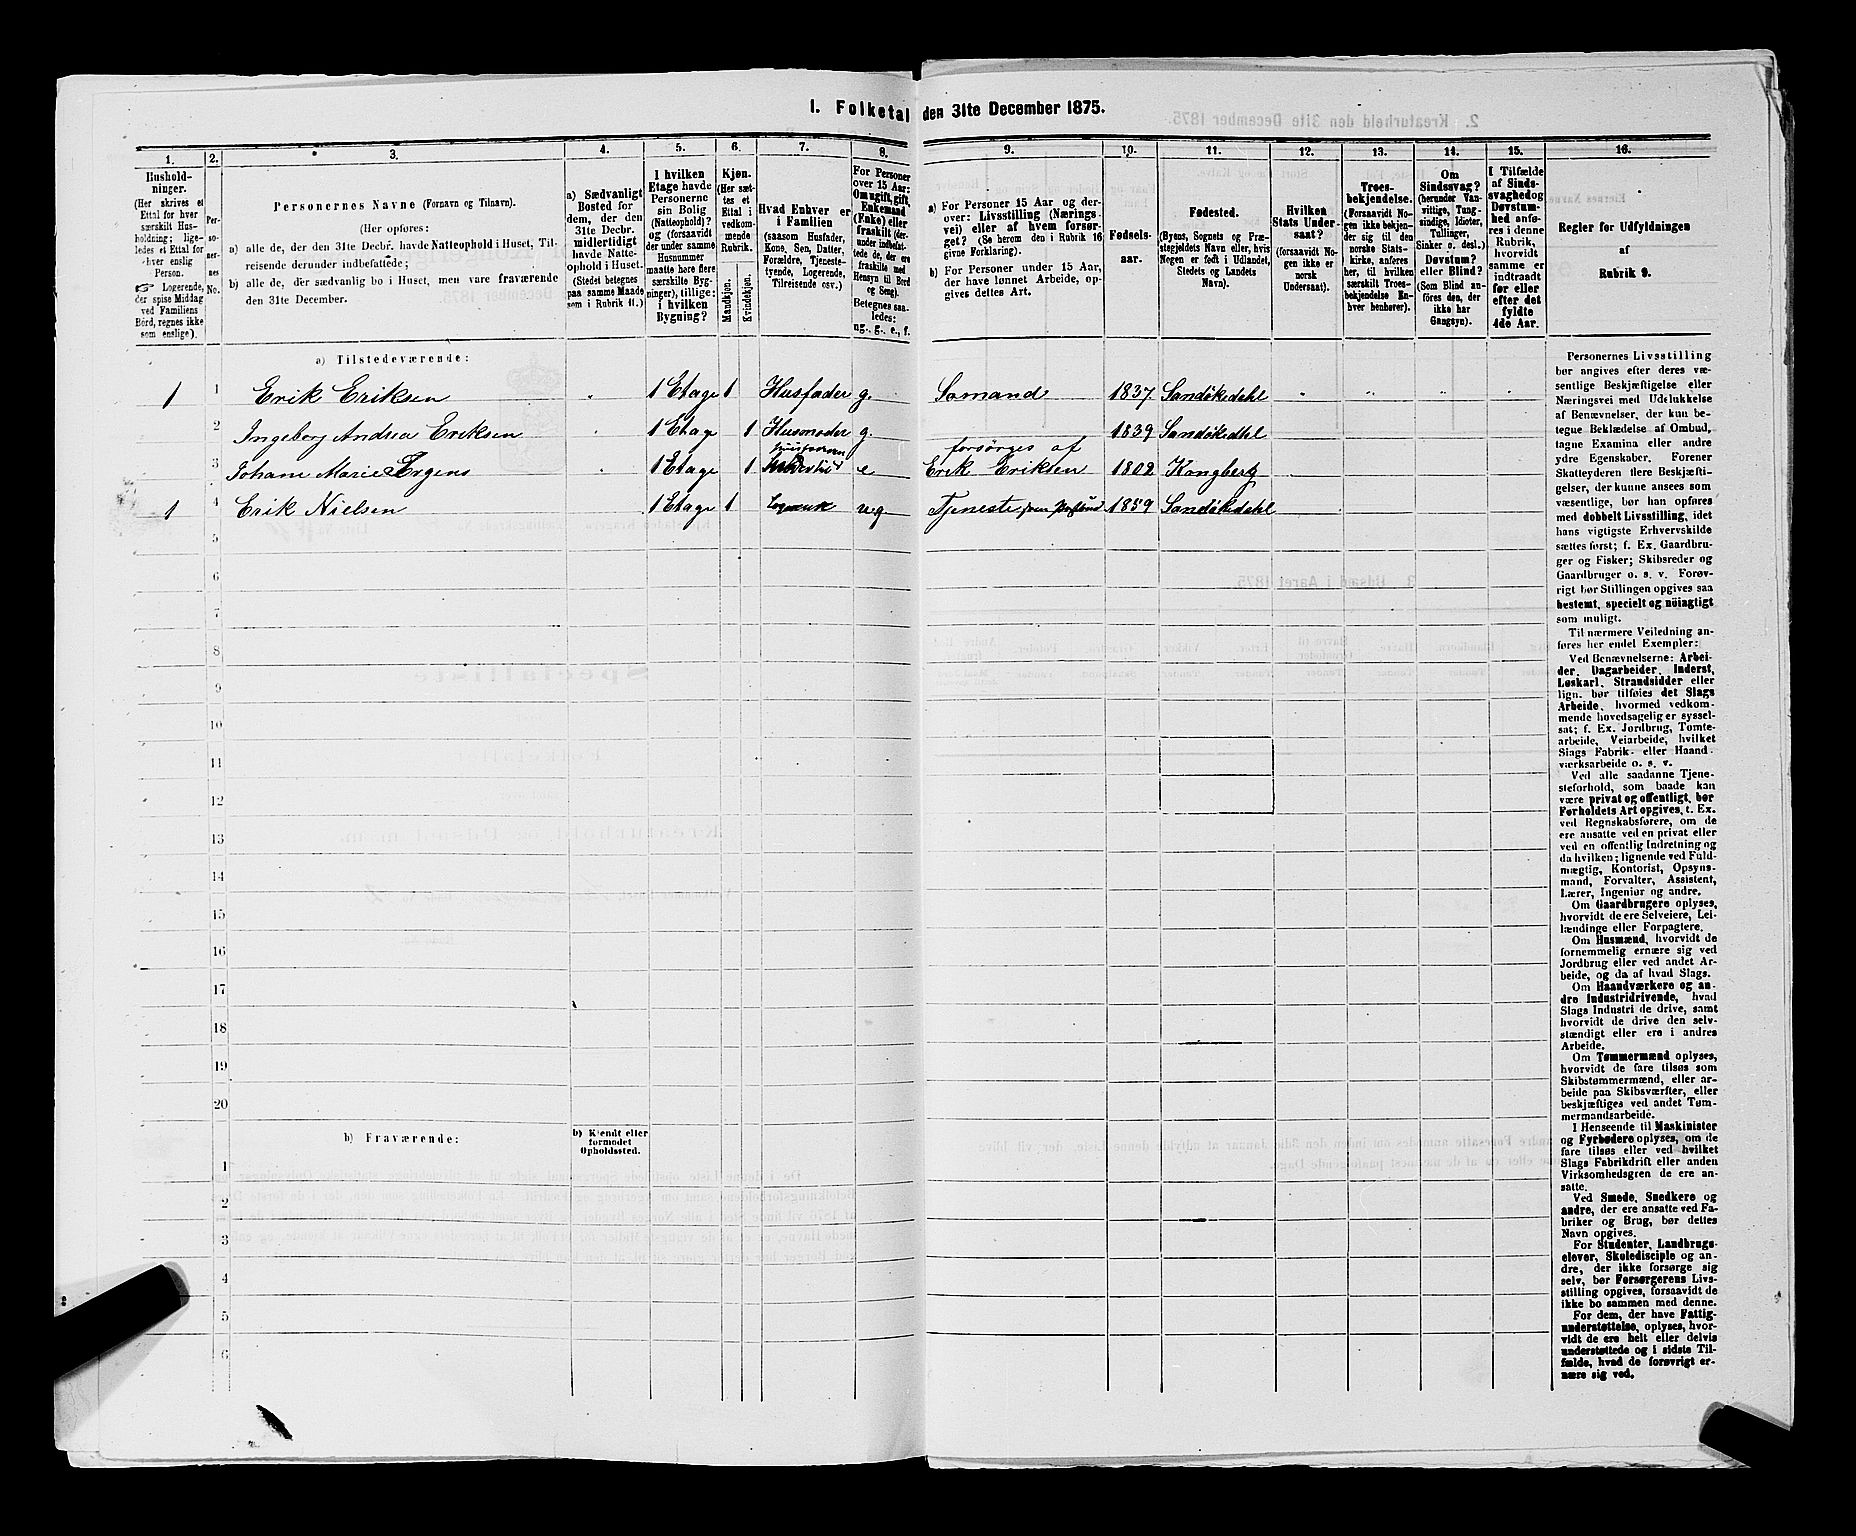 I. Folketal den 31te December 1875.
1. 2. 3. 4. 5. 6. 7. 8. 9. 10. 11. 12. 13. 14. 15. 16.
Husholdninger.
(Her skrives et
Ettal for hver
særskilt Husholdning;
ligeledes et Ettal for
hver enslig
Person.
Logerende,
der spise Middag
ved Familiens
Bord, regnes ikke
som enslige).
Personernes No.
Personernes Navne (Fornavn og Tilnavn).
(Her opføres:
a) alle de, der den 31te Decbr. havde Natteophold i Huset, Tilreisende
derunder indbefattede;
b) alle de, der sædvanlig bo i Huset, men vare fraværende
den 31te December.
a) Sædvanligt
Bosted for
dem, der den
31te Decbr.
midlertidigt
havde Natteophold
i Huset.
(Stedet betegnes
paa samme Maade
som i Rubrik 11.)
I hvilken
Etage havde
Personerne
sin Bolig
(Natteophold)?
og (forsaavidt
der under samme
Husnummer
maatte høre flere
særskilte Bygninger),
tillige:
i hvilken
Bygning?
Kjøn.
(Her sættes
et
Ettal i
vedkommende
Rubrik.
Mandkjøn.
Kvindekjøn.
Hvad Enhver er
i Familien
(saasom Husfader,
Kone, Søn, Datter,
Forældre, Tjenestetyende,
Logerende,
Tilreisende osv.)
For Personer
over 15 Aar:
Om ugift, gift,
Enkemand
(Enke) eller
fraskilt (derunder
indbefattede
de, der ere
fraskilte med
Hensyn til Bord
og Seng).
Betegnes saaledes:
ug., g., e., f.
a) For Personer 15 Aar og derover:
Livsstilling (Næringsvei)
eller af hvem forsørget?
(Se herom den i Rubrik 16
givne Forklaring).
b) For Personer under 15 Aar,
der have lønnet Arbeide, opgives
dettes Art.
Fødselsaar.
Fødested.
(Byens, Sognets og Præstegjeldets
Navn eller, hvis
Nogen er født i Udlandet,
Stedets og Landets
Navn).
Hvilken
Stats Undersaat?
(forsaavidt Nogen
ikke er
norsk
Undersaat).
Troesbekjendelse.
(Forsaavidt Nogen
ikke bekjender
sig til den
norske Statskirke,
anføres
her, til hvilken
særskilt Troesbekjendelse
Enhver
henhører).
Om
Sindssvag?
(herunder Vanvittige,
Tungsindige,
Idioter,
Tullinger,
Sinker o. desl.)
Døvstum?
eller Blind?
(Som Blind anføres
den, der
ikke har
Gangsyn).
I Tilfælde
af Sindssvaghed
og
Døvstumhed
anføres
i denne
Rubrik,
hvorvidt
samme er
indtraadt
før eller
efter det
fyldte
4de Aar.
Regler for Udfyldningen
af
Rubrik 9.
a) Tilstedeværende:
1 1 Erik Eriksen 1 Etage 1 Husfader g. Sømand 1837 Sandøkedahl
2 Ingeborg Andrea Eriksen 1 Etage 1 Husmoder g. 1839 Sandøkedhl
3 Johane Marie 1 Etage 1 e forsørges af
Erik Eriksen 1802 Kongberg
1 4 Erik Nielsen 1 Etage 1 ug Tjeneste 1859 Sandøkedahl
5
6
7
8
9
10
11
12
13
14
15
16
17
18
19
20
b) Fraværende:
b) Kjendt eller
formodet
Opholdssted.
1
2
3
4
5
6
Personernes Livsstilling
bør angives efter deres væsentlige
Beskjæftigelse eller
Næringsvei med Udelukkelse
af Benævnelser, der kun betegne
Beklædelse af Ombud,
tagne Examina eller andre
ydre Egenskaber. Forener
Skatteyderen flere Beskjæftigelser,
der kunne ansees som
væsentlige, bør han opføres
med dobbelt Livsstilling, idet
hans vigtigste Erhvervskilde
sættes først; f. Ex. Gaardbruger
og Fisker; Skibsreder og
Gaardbruger o. s. v. Forøvrigt
bør Stillingen opgives saa
bestemt, specielt og nøiagtigt
som muligt.
Til nærmere Veiledning anføres
her endel Exempler:
Ved Benævnelserne: Arbeider,
Dagarbeider, Inderst,
Løskarl, Strandsidder eller
lign. bør tilføies det Slags
Arbeide, hvormed vedkommende
hovedsagelig er sysselsat;
f. Ex. Jordbrug, Tomtearbeide,
Veiarbeide, hvilket
Slags Fabrik- eller Haandværksarbeide
o. s. v.
Ved alle saadanne Tjenesteforhold,
som baade kan
være privat og offentligt, bør
Forholdets Art opgives, t. Ex.
ved Regnskabsførere, om de
ere ansatte ved en privat eller
ved en offentlig Indretning og
da hvilken; lignende ved Fuldmægtig,
Kontorist, Opsynsmand,
Forvalter, Assistent,
Lærer, Ingeniør og andre.
Om Gaardbrugere oplyses,
hvorvidt de ere Selveiere, Leilændinge
eller Forpagtere.
Om Husmænd, hvorvidt de
fornemmelig ernære sig ved
Jordbrug eller ved andet Arbeide,
og da af hvad Slags.
Om Haandværkere og andre
Industridrivende, hvad
Slags Industri de drive, samt
hvorvidt de drive den selvstændigt
eller ere i andres
Arbeide.
Om Tømmermænd oplyses,
hvorvidt de fare tilsøs som
Skibstømmermænd, eller arbeide
paa Skibsværfter, eller
beskjæftiges ved andet Tømmermandsarbeide.
I Henseende til Maskinister
og Fyrbødere oplyses, om de
fare tilsøs eller ved hvilket
Slags Fabrikdrift eller anden
Virksomhedsgren de ere ansatte.
Ved Smede, Snedkere og
andre, der ere ansatte ved Fabriker
og Brug, bør dettes
Navn opgives.
For Studenter, Landbrugselever,
Skoledisciple og andre,
der ikke forsørge sig
selv, bør Forsørgerens Livsstilling
opgives, forsaavidt de
ikke bo sammen med denne.
For dem, der have Fattigunderstøttelse,
oplyses, hvorvidt
de ere helt eller delvis
understøttede og i sidste Tilfælde,
hvad de forøvrigt ernære
sig ved.